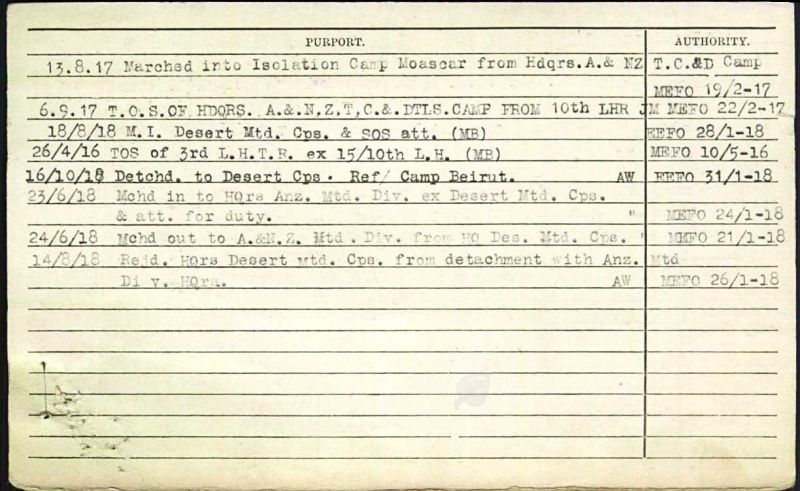 PURPORT. AUTHORITY.
13.8.17 Marched into Isolation Camp Moascar from Hdqrs.A.& NZ T.C.&D Camp
MEFO 19/2-17
6.9.17 T.O.S.OF HDQRS. A.&.N,Z,T,C.&.DTLS.CAMP FROM 10th LHR JM MEFO 22/2-17
18/8/18 M.I. Desert Mtd. Cps. & SOS att. (MB) EEFO 28/1-18
26/4/16 TOS of 3rd L.H.T.R. ex 15/10th L.H. (MB) MEFO 10/5-16
16/10/18 Detchd. to Desert Cps. Ref/ Camp Beirut. AW EEFO 31/1-18
23/6/18 Mchd in to HQrs Anz. Mtd. Div. ex Desert Mtd. Cps.
& att. for duty. " MEFO 24/1-18
24/6/18 Mchd out to A.&N.Z. Mtd. Div. from HQ Des. Mtd. Cps. " MEFO 21/1-18
14/8/18 Rejd. HQrs Desert Mtd. Cps. from detachment with Anz. Mtd
Di v. HQra. AW MEFO 26/1-18